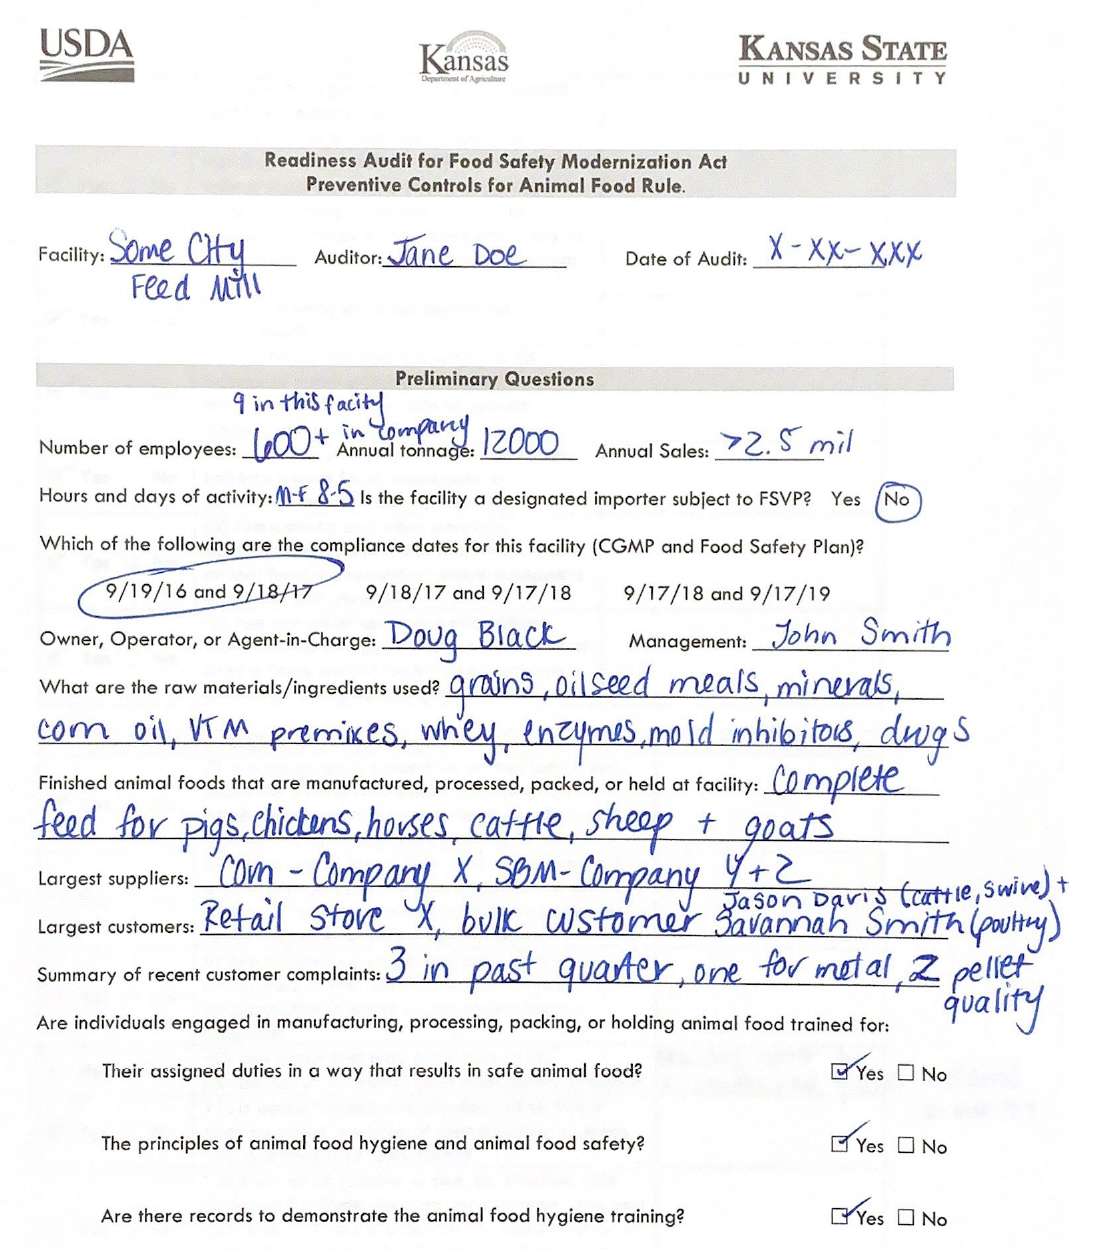 USDA
Kansas
Department of Agriculture
KANSAS STATE
UNIVERSITY
Readiness Audit for Food Safety Modernization Act
Preventive Controls for Animal Food Rule.
Facility: Some City Feed Mill
Auditor: Jane Doe
Date of Audit: X-XX-XXX
Preliminary Questions
9 in this facity
Number of employees: 600+ in company Annual tonnage: 12000 Annual Sales: >2.5 mil
Hours and days of activity: M-F 8-5 Is the facility a designated importer subject to FSVP? Yes No
Which of the following are the compliance dates for this facility (CGMP and Food Safety Plan)?
9/19/16 and 9/18/17 9/18/17 and 9/17/18 9/17/18 and 9/17/19
Owner, Operator, or Agent-in-Charge: Doug Black Management: John Smith
What are the raw materials/ingredients used? grains, oilseed meals, minerals,
corn oil, VTM premixes, whey, enzymes, mold inhibitors, drugs
Finished animal foods that are manufactured, processed, packed, or held at facility: Complete
feed for pigs, chickens, horses, cattle, sheep + goats
Largest suppliers: Corn - Company X, SBM - Company Y+Z
Jason Davis (cattle, swine) +
Largest customers: Retail Store X, bulk customer Savannah Smith (poultry)
Summary of recent customer complaints: 3 in past quarter, one for metal, 2 pellet
quality
Are individuals engaged in manufacturing, processing, packing, or holding animal food trained for:
Their assigned duties in a way that results in safe animal food? Yes No
The principles of animal food hygiene and animal food safety? Yes No
Are there records to demonstrate the animal food hygiene training? Yes No